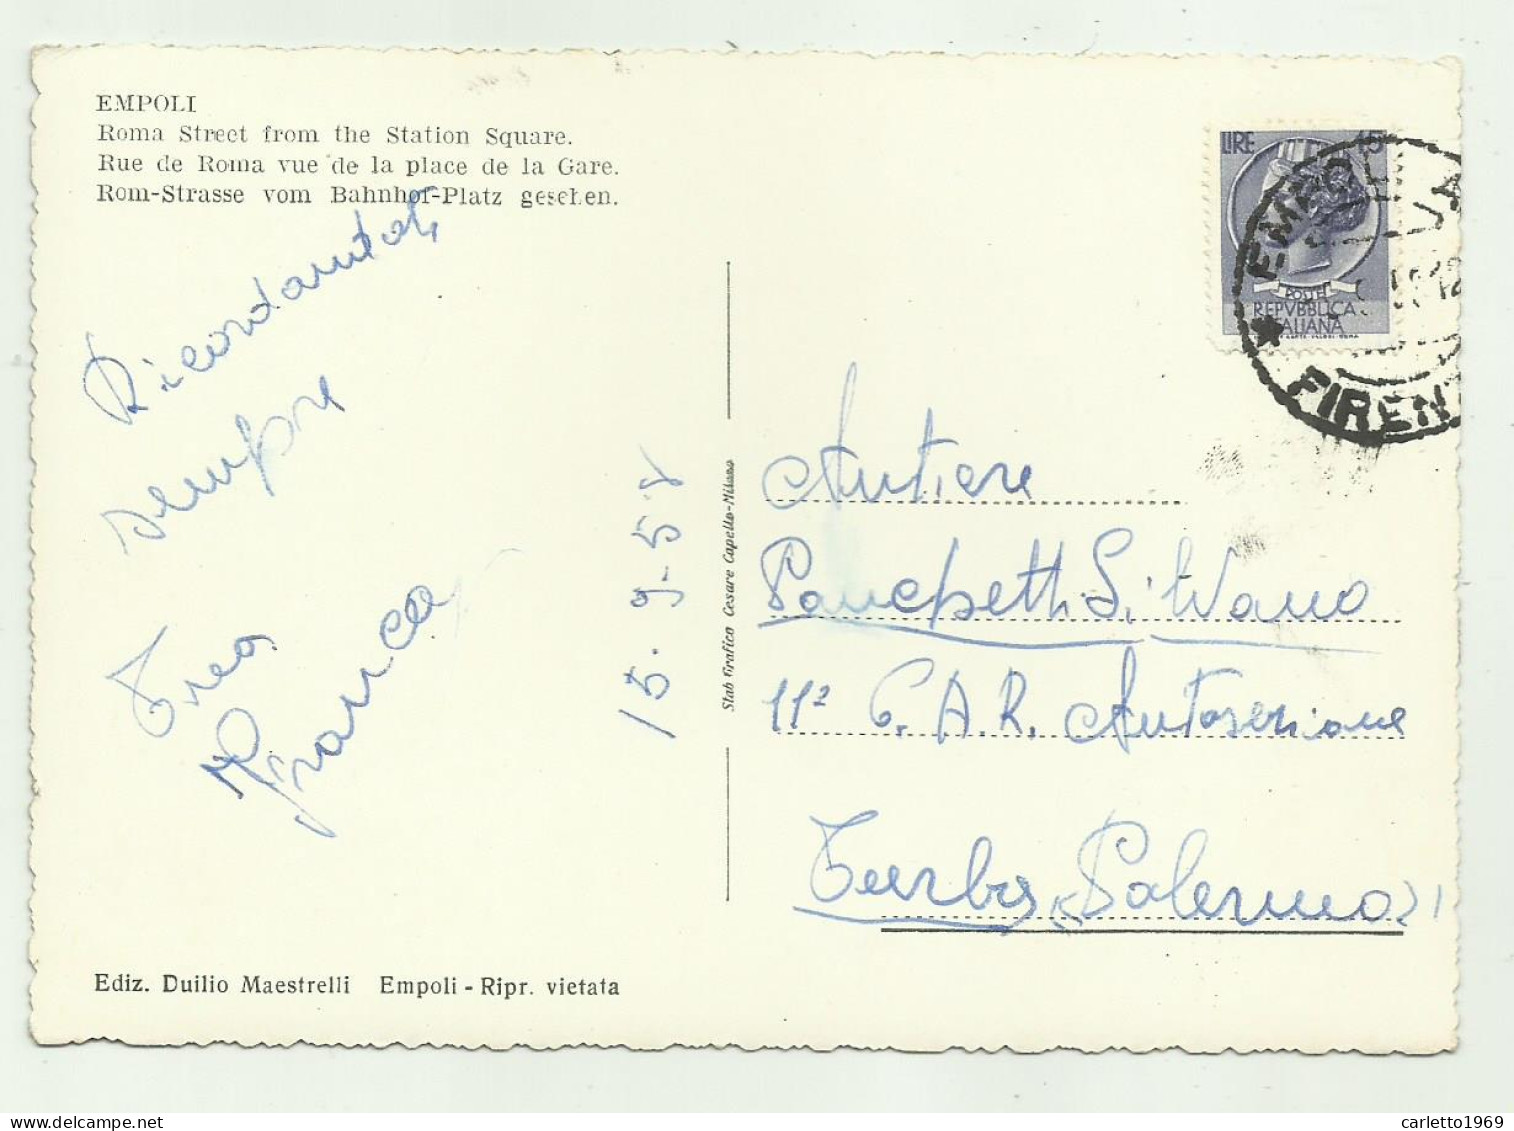 EMPOLI
Roma Street from the Station Square.
Rue de Roma vue de la place de la Gare.
Rom-Strasse vom Bahnhof-Platz gesehen.
Ricordantoti
sempre
Tua
Franca
15-9-58
Stab Grafico Cesare Capello-Milano
LIRE 15
POSTE
REPVBBLICA
ITALIANA
EMPOLI
FIRENZ
Autiere
Silvano
11º C.A.R. Autosezione
Palermo
Ediz. Duilio Maestrelli Empoli - Ripr. vietata
carletto1969